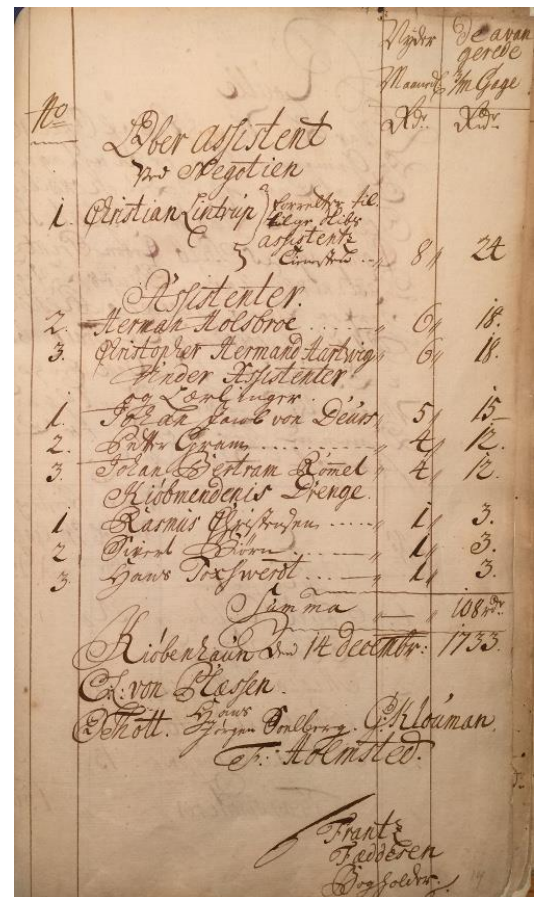 No
Rdr. Rdr.
Ober Assistent
ved Negotien
1. Christian Lintrup forretter til
assistentz
8 24
Assistenter.
2. Herman Holsbroe 6 18.
3. Christopher Hermand Hartwig 6 18.
Under Assistenter
og Lærlinger.
1. Johan Jacob von Deurs 5 15
2. Petter Gram 4 12.
3. Johan Bertram Römel 4 12.
Kiöbmendenis Drenge.
1 Rasmus Christensen 1 3.
2 Sivert Biörn 1 3.
3 Hans Toxswerdt 1 3.
Summa 108 rdr.
Kiöbenhaun den 14 decembr: 1733.
C. A: von Plessen.
O Thott. Hans Jörgen Soelberg. G: Klouman.
F: Holmsted.
Frantz
Fæddesen
Bogholder.